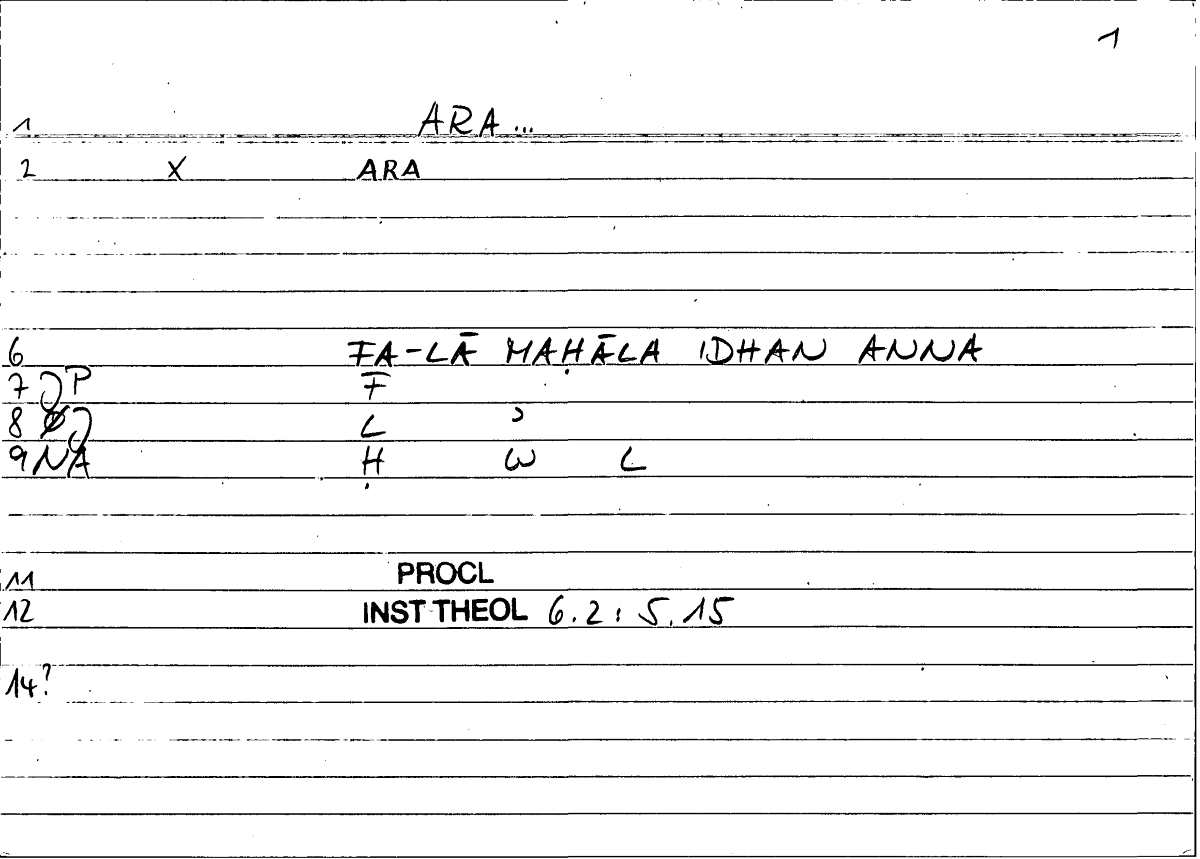 1
1 ARA ...
2 X ARA
6 FA-LĀ MAḤĀLA IDHAN ANNA
7 P F
8 L ʾ
9 NA Ḥ W L
11 PROCL
12 INST THEOL 6.2 : 5.15
14?